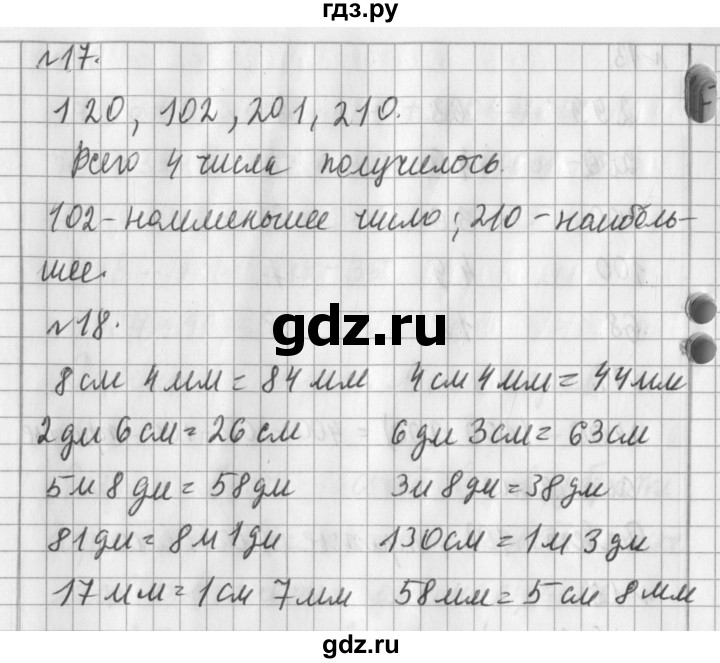 гдз.ру
№17.
120, 102, 201, 210.
Всего 4 числа получилось.
102 - наименьшее число; 210 - наиболь-
шее.
№18.
gdz.ru
8 см 4 мм = 84 мм 4 см 4 мм = 44 мм
2 дм 6 см = 26 см 6 дм 3 см = 63 см
5 м 8 дм = 58 дм 3 м 8 дм = 38 дм
81 дм = 8 м 1 дм 130 см = 1 м 3 дм
17 мм = 1 см 7 мм 58 мм = 5 см 8 мм
gdz.ru